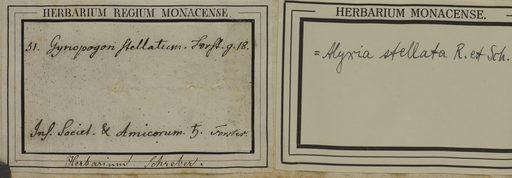 HERBARIUM REGIUM MONACENSE.
31. Gynopogon stellatum. Forst. g. 18.
Ins. Societ. & Amicorum. ♄. Forster.
Herbarium Schreber.
HERBARIUM MONACENSE.
= Alyxia stellata R. et Sch.